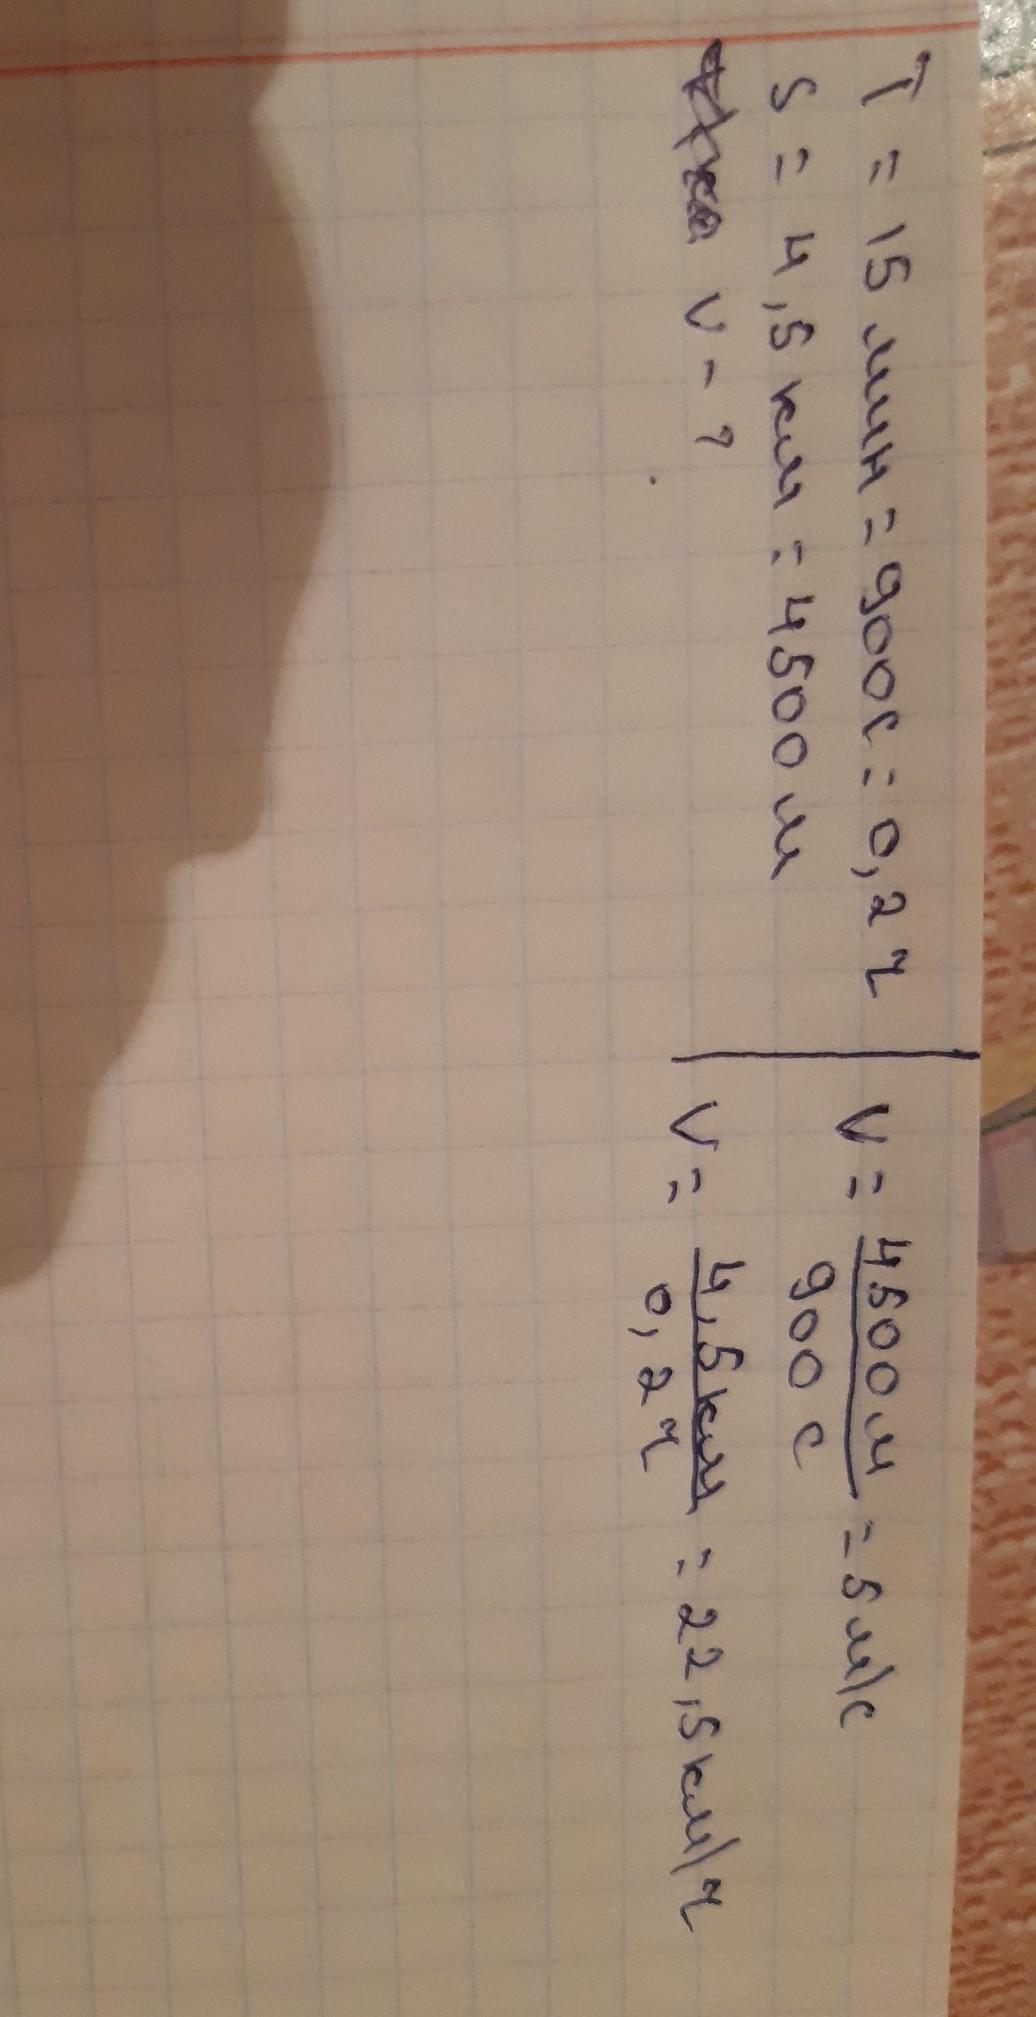 T = 15 мин = 900с = 0,2 ч
S = 4,5 км = 4500 м
V - ?
V = 4500 м / 900 с = 5 м/с
V = 4,5 км / 0,2 ч = 22,5 км/ч